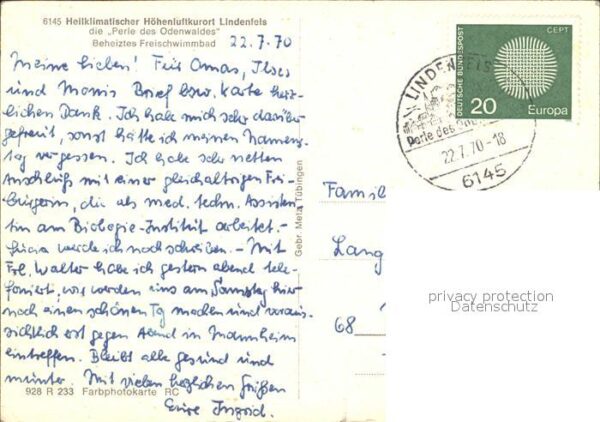 6145 Heilklimatischer Höhenluftkurort Lindenfels
die „Perle des Odenwaldes"
Beheiztes Freischwimmbad
22.7.70
Meine Lieben! Für Omas, Ilses
und Monis Brief bzw. Karte herz-
lichen Dank. Ich habe mich sehr darüber
gefreut, sonst hätte ich meinen Namens-
tag vergessen. Ich habe sehr netten
Anschluß mit einer gleichaltrigen Frei-
burgerin, die als med. techn. Assisten-
tin am Biologie-Institut arbeitet. -
werde ich noch schreiben. - Mit
Frl. Walter habe ich gestern abend tele-
foniert, wir werden uns am Samstag hier
noch einen schönen Tg machen und voraus-
sichtlich erst gegen Abend in Mannheim
eintreffen. Bleibt alle gesund und
munter. Mit vielen herzlichen Grüßen
Eure Ingrid.
928 R 233 Farbphotokarte RC
Gebr. Metz Tübingen
LINDENFELS
Perle des
22.7.70-18
6145
DEUTSCHE BUNDESPOST
CEPT
20
Europa
Famil
Lang
68
privacy protection
Datenschutz